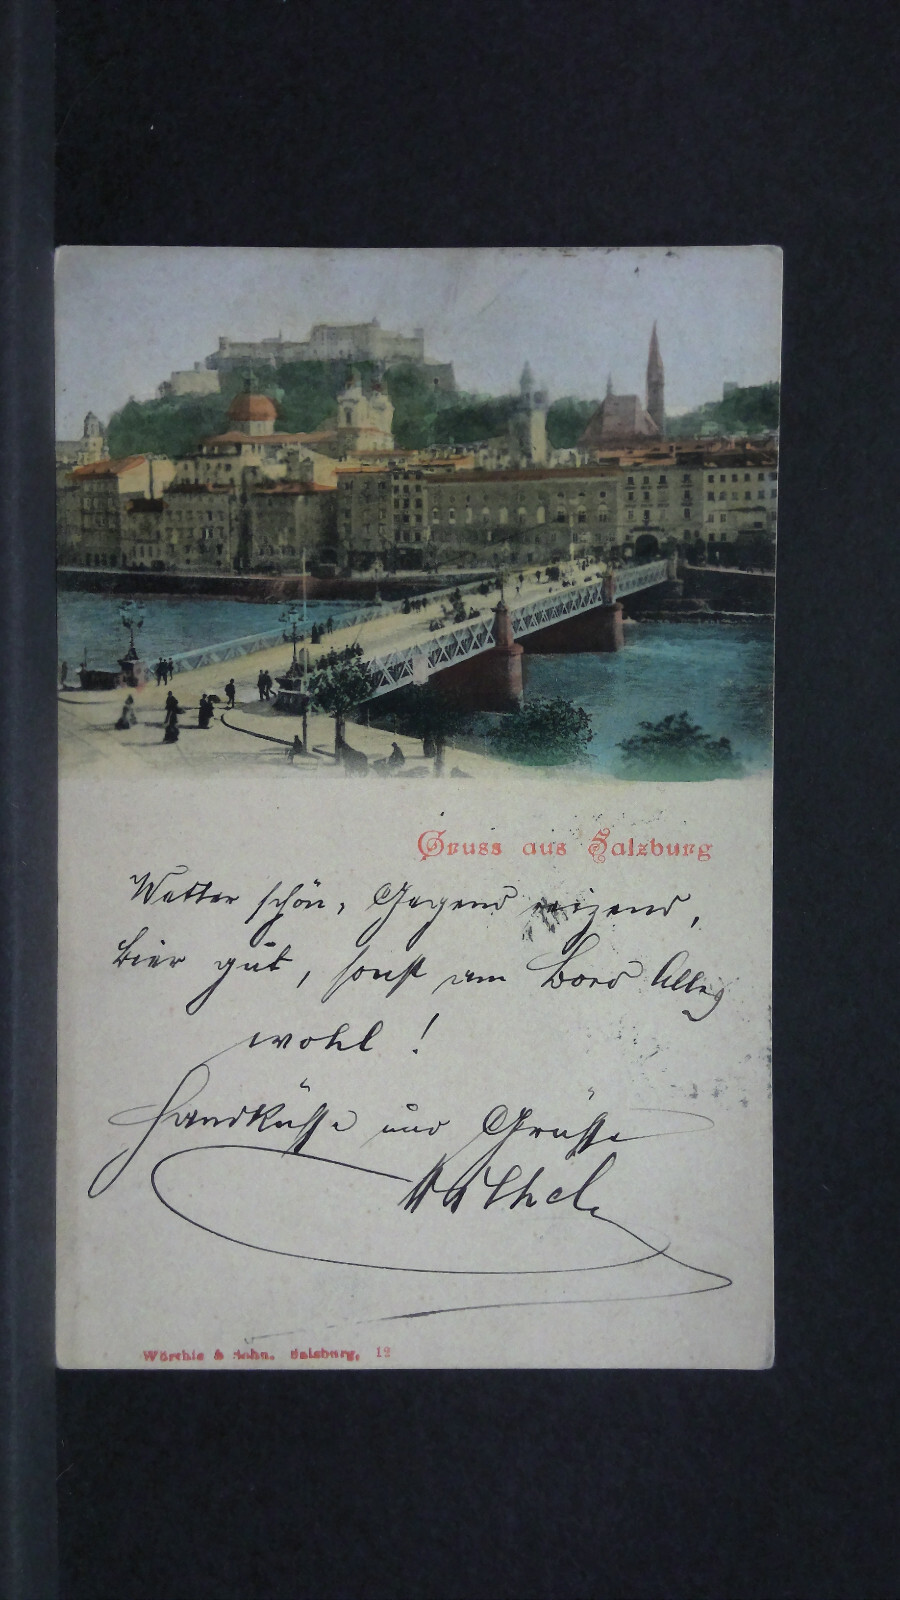 Gruss aus Salzburg
Wetter schön, Gegend reizend,
Bier gut, sonst am Bord Alles
wohl!
Handküsse und Grüsse
Würthle & Sohn. Salzburg, 12